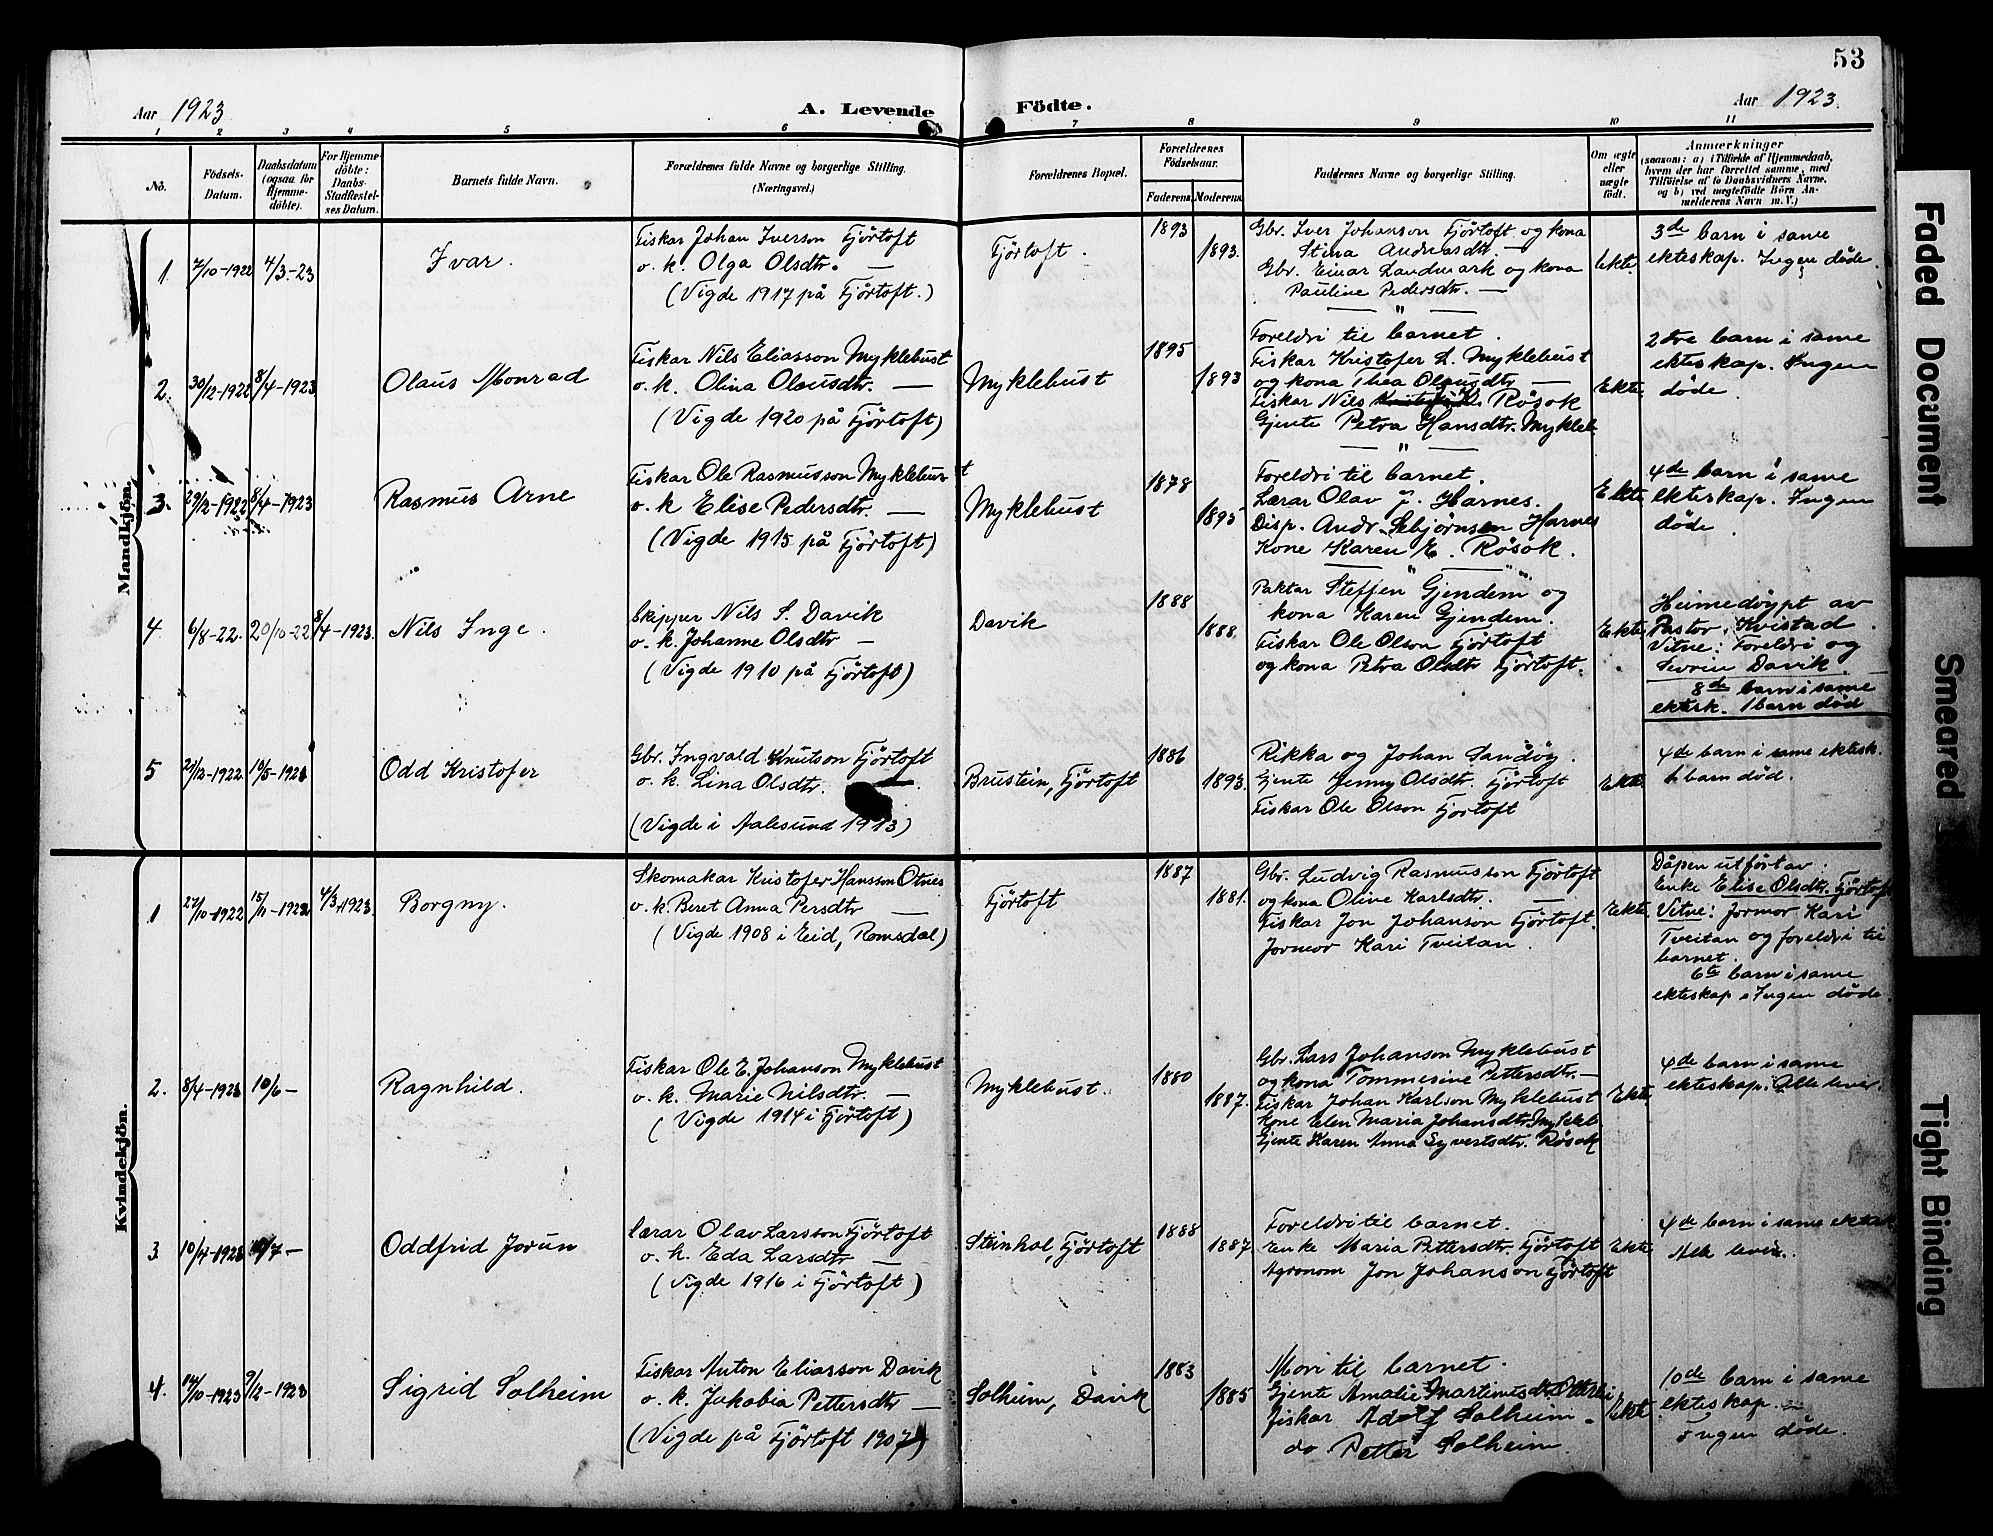 53
Aar 1923
A. Levende Födte.
Aar 1923.
1 2 3 4 5 6 7 8 9 10 11
No.
Födsels-Datum.
Daabsdatum (ogsaa for Hjemme-döbte).
For Hjemme-döbte: Daabs-Stadfæstel-ses Datum.
Barnets fulde Navn.
Forældrenes fulde Navne og borgerlige Stilling. (Næringsvei.)
Forældrenes Bopæl.
Forældrenes Födselsaar.
Faderens Moderens
Faddernes Navne og borgerlige Stilling.
Om ægte eller uægte födt.
Anmærkninger
(saasom: a) i Tilfælde af Hjemmedaab,
hvem der har forrettet samme, med
Tilföielse af to Daabsvidners Navne,
og b) ved uægtefödte Börn An-
melderens Navn m. V.)
Mandkjön.
1 7/10-1922 4/3-23 Ivar.
Fiskar Johan Iverson Fjörtoft
o. k. Olga Olsdtr. —
(Vigde 1917 på Fjörtoft.)
Fjörtoft.
1893
1893.
Gbr. Iver Johanson Fjörtoft og kona
Stina Andreasdtr. —
Gbr. Einar Landmark og kona
Pauline Pedersdtr. —
ekte.
3de barn i same
ekteskap. Ingen döde.
2. 30/12-1922 8/4-1923 Olaus Monrad
Fiskar Nils Eliasson Myklebust
o. k. Olina Olausdtr. —
(Vigde 1920 på Fjörtoft)
Myklebust
1895
1893
Foreldri til barnet.
Fiskar Kristofer L. Myklebust
og kona Thea Olausdtr —
Fiskar Nils K. Rösok
Gjente Petra Hansdtr. Mykleb.
Ekte.
2dre barn i same
ekteskap. Ingen
döde.
3. 29/12-1922 8/4-1923 Rasmus Arne
Fiskar Ole Rasmusson Myklebust
o. k Elise Pedersdtr. —
(Vigde 1915 på Fjörtoft)
Myklebust
1878
1895
Foreldri til barnet.
Lærar Olav J. Harnes.
Disp. Andr. Sebjörnsen Harnes
Kone Karen E. Rösok.
Ekte.
4de barn i same
ekteskap. Ingen
döde.
4 6/8-22. 20/10-22 8/4-1923. Nils Inge.
Skipper Nils S. Davik
o. k. Johanne Olsdtr —
(Vigde 1910 på Fjörtoft)
Davik
1888
1888.
Paktar Steffen Gjendem og
kona Karen Gjendem.
Fiskar Ole Olson Fjörtoft
og kona Petra Olsdtr Fjörtoft.
Ekte.
Heimedöypt av
Pastor Kvistad.
Vitne: Foreldri og
Severin Davik.
8de barn i same
ektesk. 1 barn död
5 29/12-1922 10/5-1923 Odd Kristofer
Gbr. Ingvald Knutson Fjörtoft
o. k. Lina Olsdtr. —
(Vigde i Aalesund 1913)
Brustein, Fjörtoft
1886
1893.
Rikka og Johan Sandöy.
Gjente Jenny Olsdtr. Fjörtoft
Fiskar Ole Olson Fjörtoft
Ekte.
4de barn i same ektesk.
1 barn död.
Kvindekjön.
1 27/10-1922 15/11-1922 4/3-1923. Borgny.
Skomakar Kristofer Hansson Otnes
o. k. Beret Anna Persdtr —
(Vigde 1908 i Eid, Romsdal)
Fjörtoft
1887
1881.
Gbr. Ludvig Rasmusson Fjörtoft
og kona Oline Karlsdtr. —
Fiskar Jon Johanson Fjörtoft.
Jormor Kari Tveitan.
Ekte.
Dåpen utfört av
enke Elise Olsdtr. Fjörtoft
Vitne: Jormor Kari
Tveitan og foreldri til
barnet.
6te barn i same
ekteskap. Ingen döde.
2. 8/4-1923 10/6- Ragnhild.
Fiskar Ole E. Johanson Myklebust
o. k. Marie Nilsdtr. —
(Vigde 1914 i Fjörtoft)
Myklebust.
1880
1887.
Gbr. Lars Johanson Myklebust
og kona Tommesine Pettersdtr. —
Fiskar Johan Karlson Myklebust
Kone Elen Maria Johansdtr. Mykleb.
Gjente Karen Anna Syvertsdtr. Rösok
Ekte.
4de barn i same
ekteskap. Alle lever.
3 10/4-1923 /7- Oddfrid Jorun
Lærar Olav Larsson Fjörtoft
o. k. Eda Larsdtr —
(Vigde 1916 i Fjörtoft)
Steinhol, Fjörtoft
1888
1887
Foreldri til barnet.
Enke Maria Pettersdtr. Fjörtoft
Agronom Jon Johanson Fjörtoft
Ekte
4de barn i same ektesk.
Alle lever.
4. 14/10-1923 9/12-1923 Sigrid Solheim
Fiskar Anton Eliasson Davik
o. k. Jakobia Pettersdtr —
(Vigde på Fjörtoft 1907)
Solheim, Davik
1883
1885
Mori til barnet.
Gjente Amalie Martinusdtr. Otterlei
Fiskar Adolf Solheim.
do Petter Solheim
Ekte
10de barn i same
ekteskap.
Ingen döde.
Faded Document
Smeared
Tight Binding